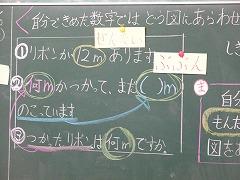 自分できめた数字では どう図にあらわせ
ぜんたい
①リボンが12mあります
ぶぶん
②何mかつかって、まだ( )m
のこっています
③つかったリボンは何mですか。
ま
自分
もんた
図を